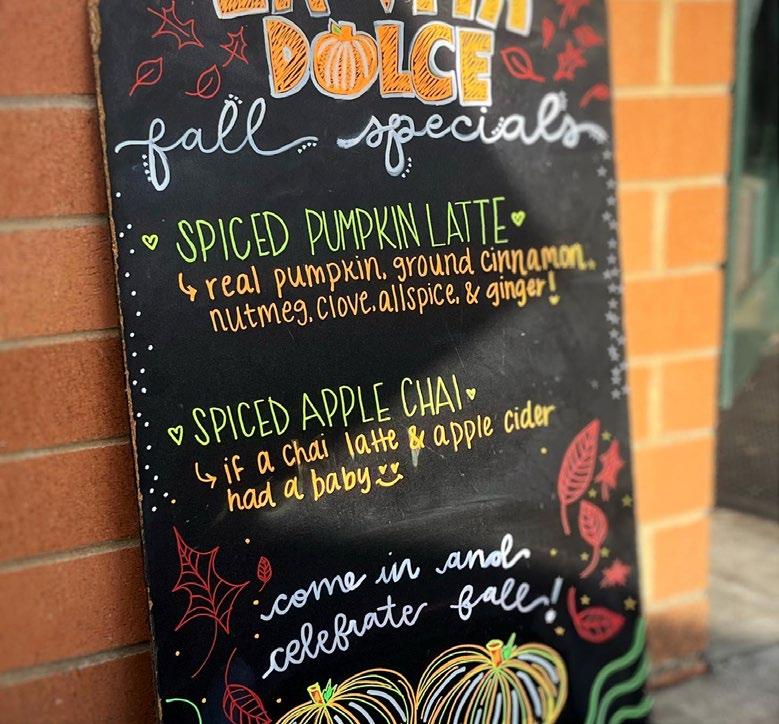 LA VITA
DOLCE
fall specials
SPICED PUMPKIN LATTE
real pumpkin, ground cinnamon,
nutmeg, clove, allspice, & ginger!
SPICED APPLE CHAI
if a chai latte & apple cider
had a baby
come in and
celebrate fall!